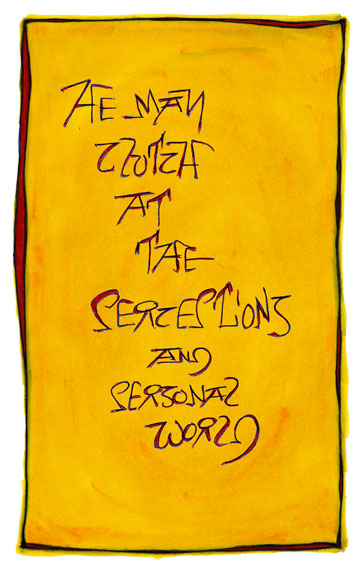 HE MAY
CLUTCH
AT
THE
PERCEPTIONS
AND
PERSONAL
WORLD